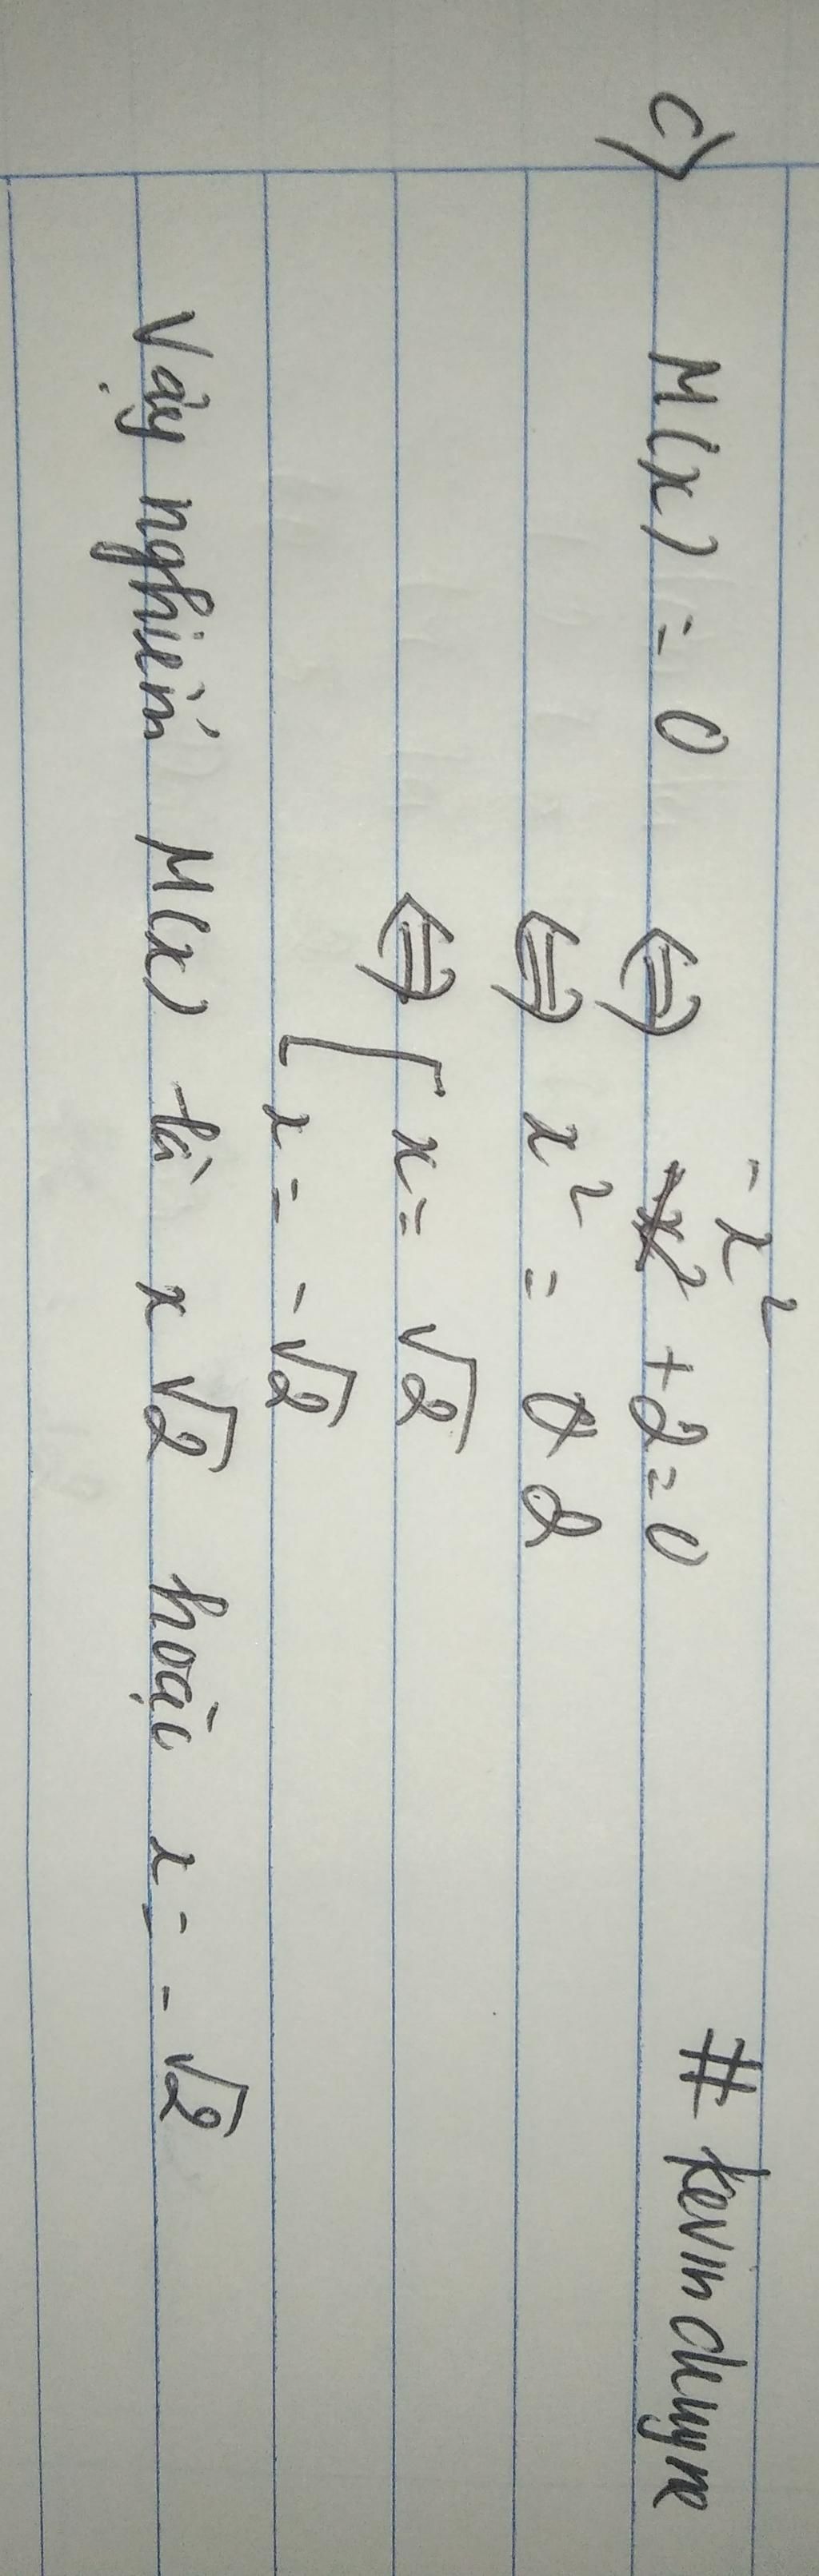 c) M(x) = 0 ⇔ -x² + 2 = 0 # kevinduyne
⇔ x² = 2
⇔ [ x = √2
x = -√2
Vậy nghiệm M(x) là x √2 hoặc x = -√2